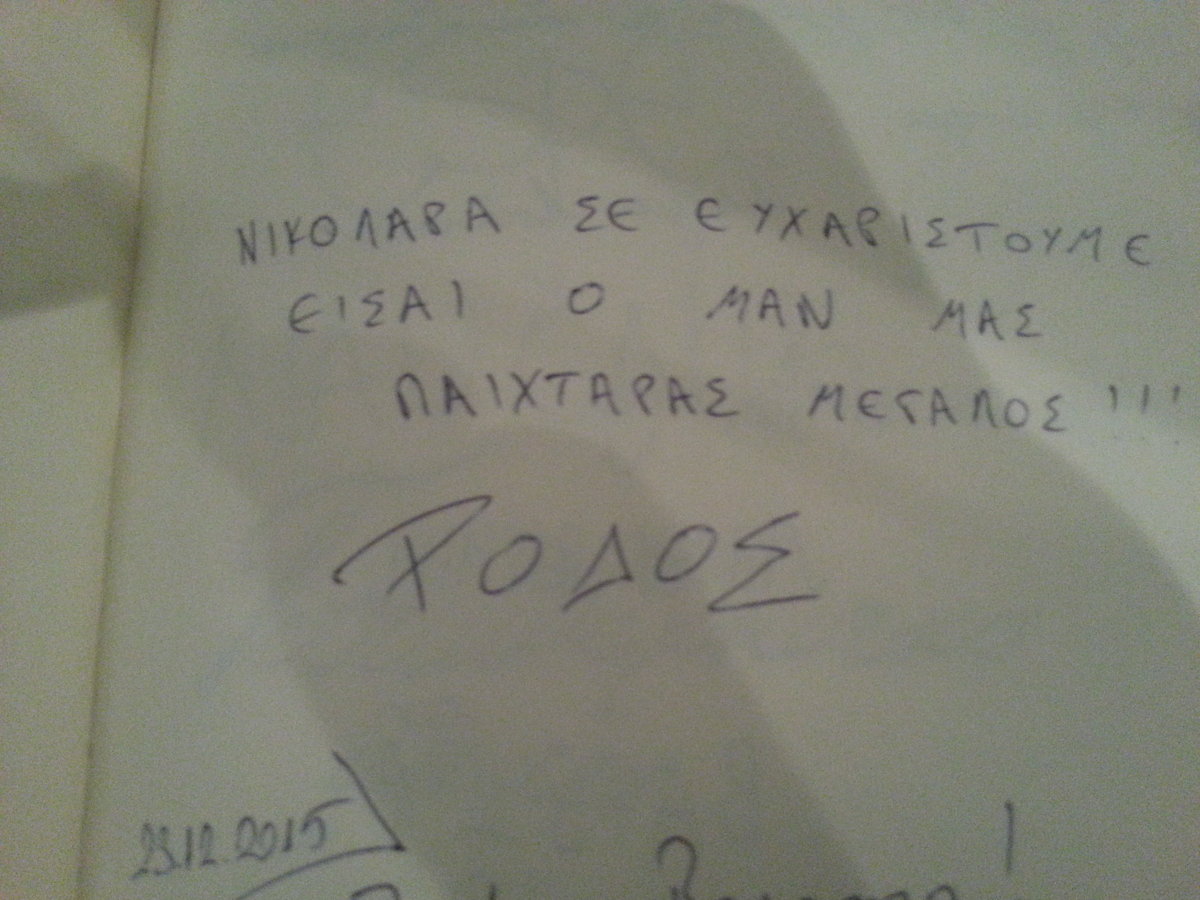 ΝΙΚΟΛΑΡΑ ΣΕ ΕΥΧΑΡΙΣΤΟΥΜΕ
ΕΙΣΑΙ Ο ΜΑΝ ΜΑΣ
ΠΑΙΧΤΑΡΑΣ ΜΕΓΑΛΟΣ!!!
ΡΟΔΟΣ
23.12.2015